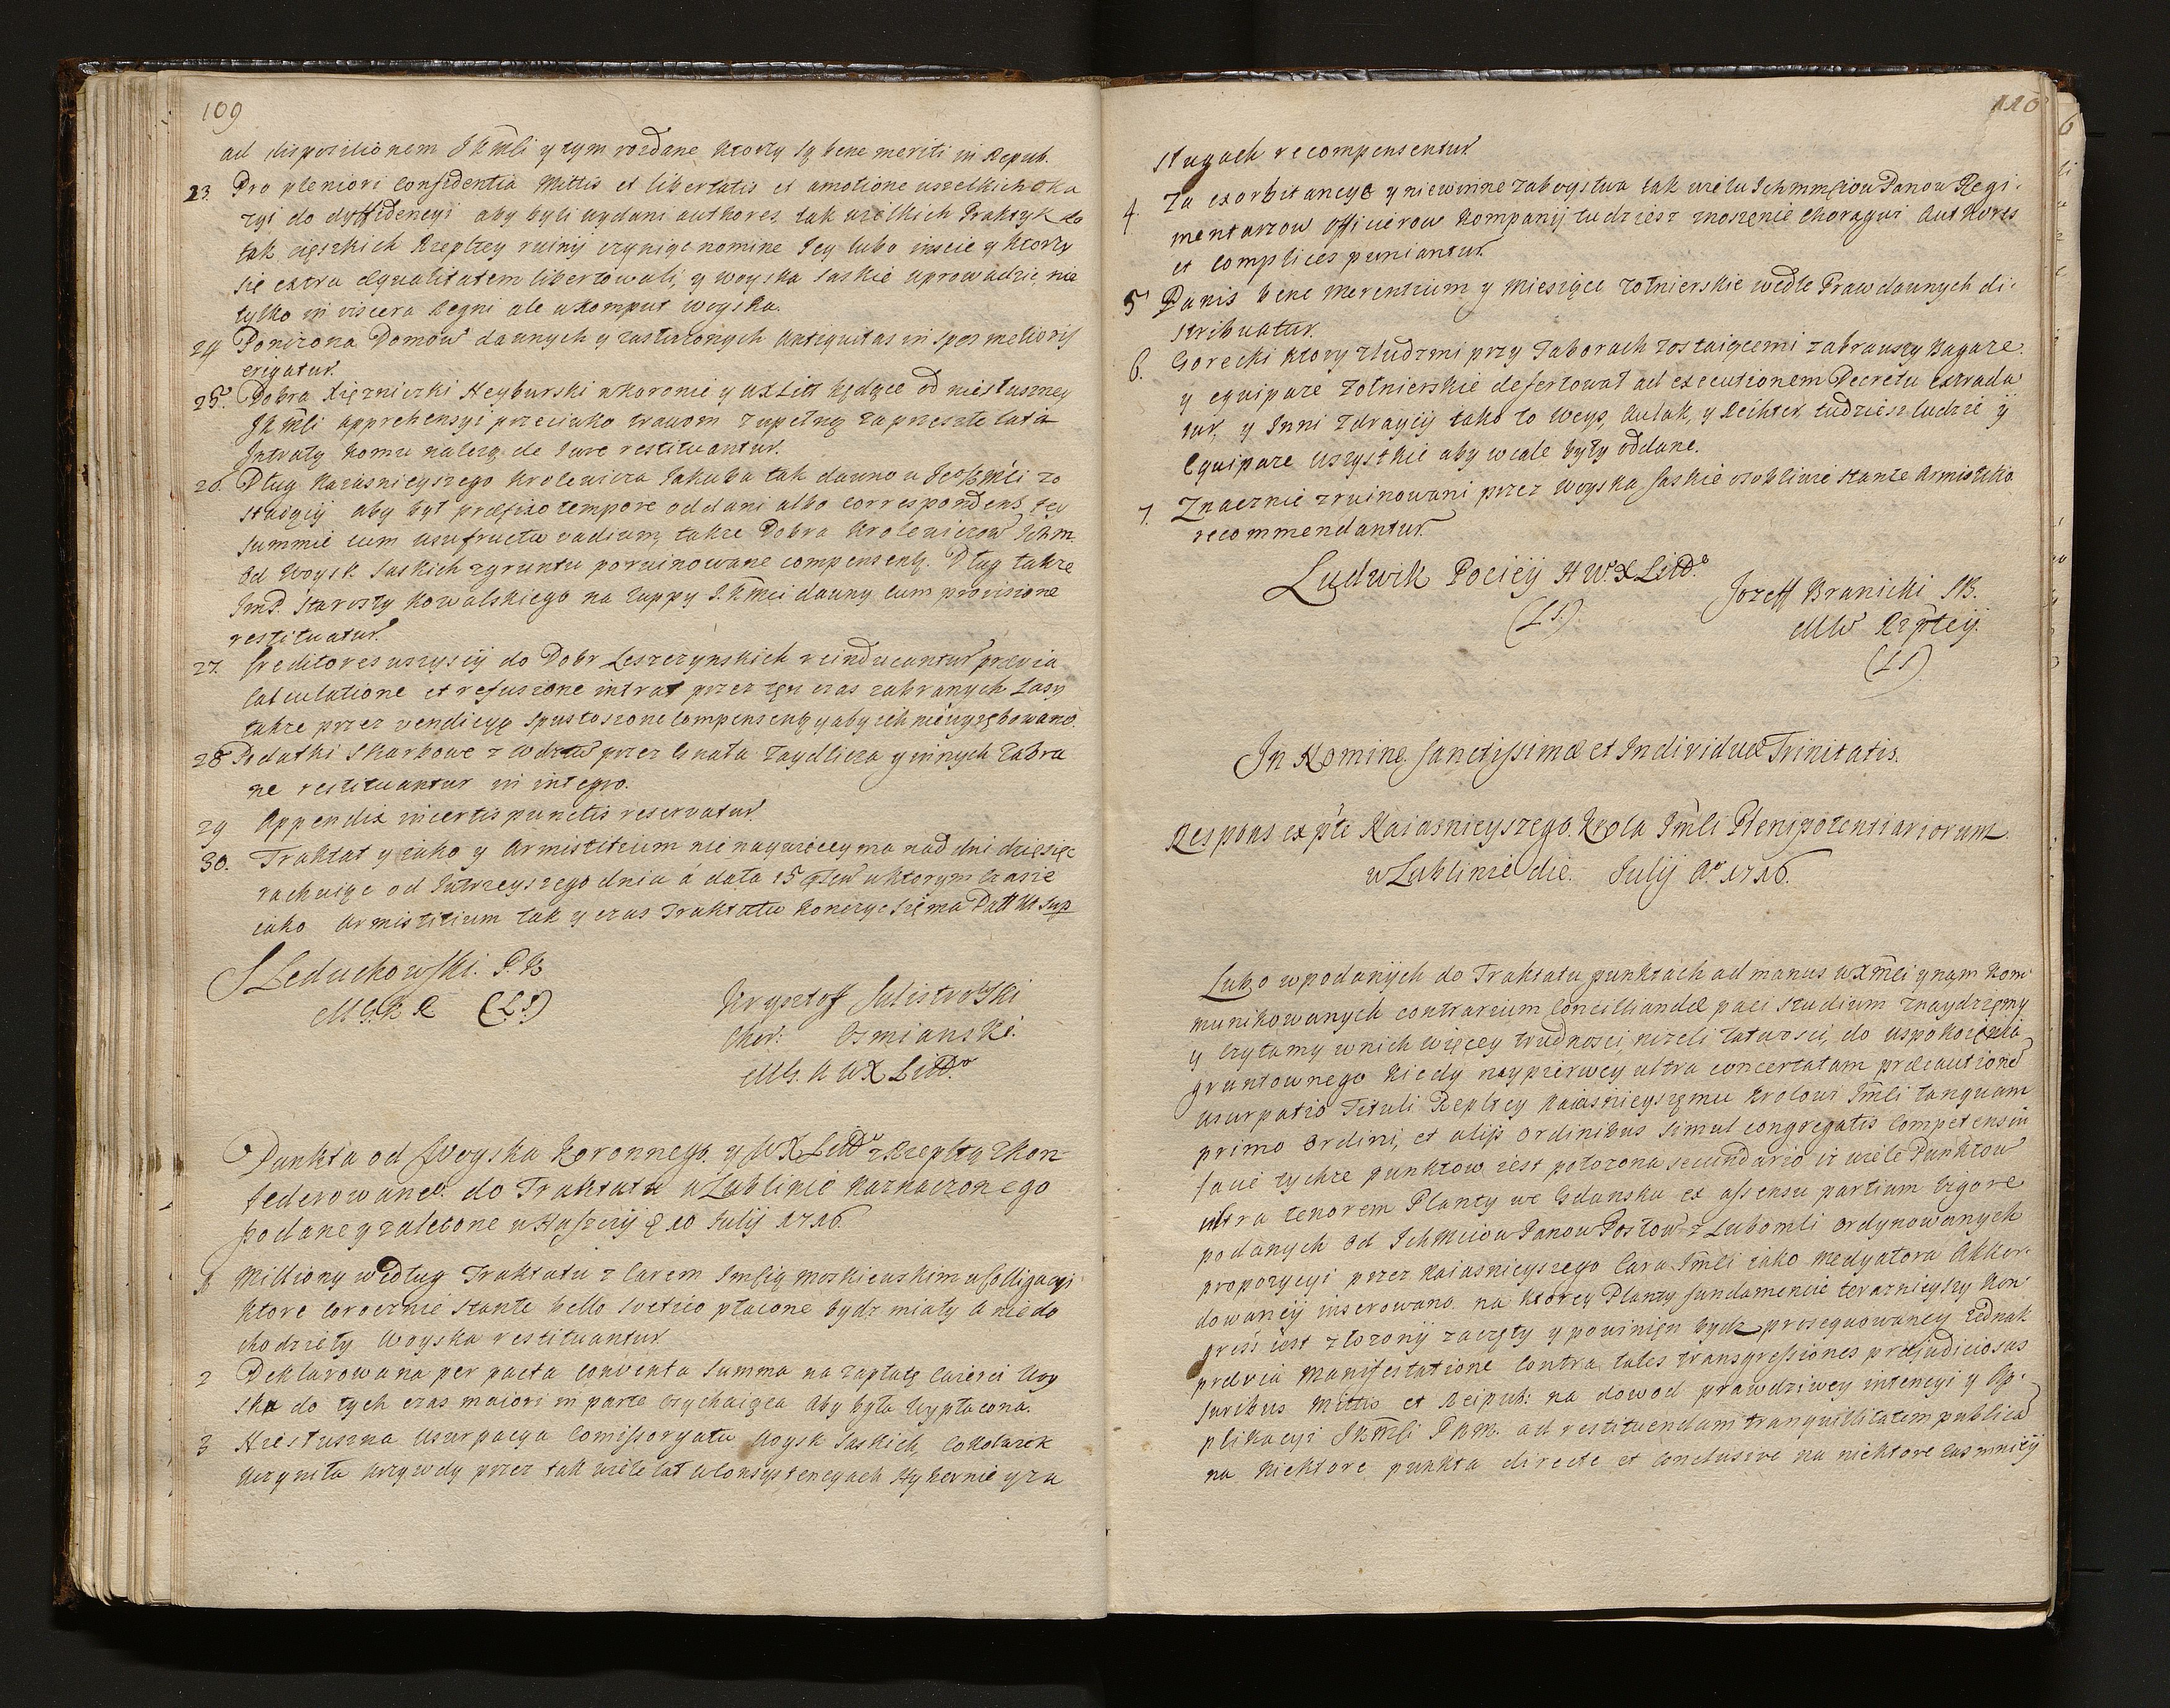 109
ad dispositionem JKMci y tym rozdane ktorzy są bene meriti in Repub.
23. Pro pleniori confidentia Mattis et libertatis et amotione wszelkich oka
zyi do dyffidencyi aby byli wydani authores tak wielkich Praktyk do
tak ciężkich Rzepltey ruiny czyniąc nomine Jey lubo inscie y ktorzy
się extra aequalitatem libertowali, y woyska saskie uprowadzic nie
tylko in viscera Regni ale w komput woyska.
24 Ponizona Domow dawnych y zasłużonych antiquitas in spem melioris
erigatur.
25. Dobra Xiężniczki Neyburski w Koronie y WXLitt będące od niesłuszney
JKMci apprehensyi przeciwko prawom zupełną za przeszłe lata
Intratą komu należą de Jure restituantur.
26. Dług Naiasnieyszego Krolewica Jakuba tak dawno u zo
staiący aby był praefixo tempore oddani albo correspondens tey
summie cum usufructu vadium, także Dobra Krolewiczow Ichm.
od Woysk Saskich zgruntu poruinowane compensentr. Dług także
JmP. Starosty Kowalskiego na Zuppy J.KMci dawny cum provisione
restituatur.
27. Creditores wszyscy do Dobr Leszczynskich reinducantur praevia
calculatione et refusione intrat przez ten czas zabranych Lasy
także przez vendicyą spustoszone compensentr y aby ich niewyrębowano.
28 Podatki Skarbowe z Wdztw przez Gnata Zaydlica y innych zabra
ne restituantur in integro.
29 Appendix in certis punctis reservatur.
30. Traktat y iako y Armistitium nie naywięcy ma nad dni dziesięc
rachuiąc od Jutrzeyszego dnia á data 15 w ktorym czasie
iako Armistitium tak y czas Traktatu konczyc się ma Datt ut sup
S Leduchowski. P.K
M G. K K (L.S)
Krysztoff Sulistrowski
Chor: Osmianski.
MG. K WX Litt.
Punkta od Woyska Koronnego y WXLitt z Rzepltą skon-
federowane. do Traktatu w Lublinie naznaczonego
podane y zalecone w 10 Julij 1716.
1 Milliony według Traktatu z Carem Imscią Moskiewskim w Colligacyi
ktore corocznie stante bello Svetico płacone bydz miały a niedo
chodziely Woyska restituantur
2 Deklarowana per pacta conventa Summa na zapłatę cwierci Woy
ska do tych czas maiori in parte czychaiąca aby była wypłacona.
3 Niesłuszna Usurpacya Comissoryatu Woysk Saskich, cokolwiek
uczyniła krzywdy przez tak wiele lat w consystencyach Hybernie y za
110
sługach recompensentur
4. Za exorbitancye y niewinne zaboystwa tak wielu Ichmmściow Panow Regi-
mentarzow officierow kompanij tudziesz znoszenie choragwi Authores
et complices puniantur.
5 Panis bene merentium y Miesiące zołnierskie wedle Praw dawnych di-
stribuatur.
6. Gorecki ktory zludzmi przy Taborach zostaiącemi zabrawszy bagaze.
y equipaze zołnierskie desertował ad executionem Decretu extrada
tur, y Inni zdraycy iako to Weys, Kulak, y Reihter, tudziesz ludzie y
Equipaze wszystkie aby wcale były oddane.
7. Znacznie zruinowani przez Woyska Saskie osobliwie stante Armistitio
recommendantur.
Ludwik Pociey H W. X Litt.
(L.S).
Jozeff Branicki SB.
MW Rzptey.
(L.S)
In Nomine Sanctissimae et Individuae Trinitatis.
Respons ex pte Naiasnieyszego Krola Jmści Plenipotentiariorum
w Lublinie die. Julij Ao 1716.
Lubo w podanych do Traktatu punktach ad manus WXmci y nam kom
munikowanych contrarium conciliandae paci studium znaydziemy
y czytamy w nich więcey trudnosci, nizeli łatwosci, do uspokoienia
gruntownego kiedy naypierwey ultra concertatam praecautione
usurpatio Tituli Rzepltey Naiasnieyszemu Krolowi Jmści tanquam
primo Ordini, et alijs Ordinibus simul congregatis competens in
facie tychże punktow iest położona secundario iż wiele Punktow
ultra tenorem Planty we Gdansku ex assensu partium vigore
podanych od Ichmciow Panow Posłow z Lubomli ordynowanych
propozycyi przez Naiasnieyszego Cara Jmści iako medyatora akkor-
dowaney inserowano na ktorey Planty fundamencie teraznieyszy Kon
gress iest złozony zaczęty y powinien bydz prosequowaney jednak
praevia manifestatione contra tales transgressiones praejudiciosas
Juribus Mattis et Reipub: na dowod prawdziwey intencyi y Ap-
plikacyi JKMci P.n.m. ad restituendam tranquillitatem publica
na niektore punkta directe et conclusive na niektore zas mniey